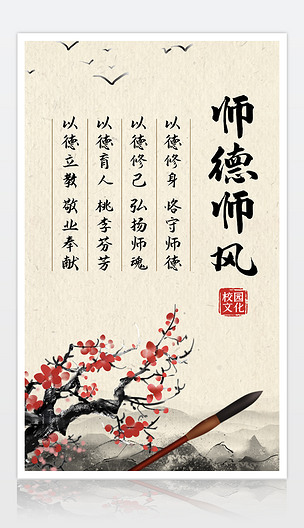 师德师风
校园
文化
以德修身 恪守师德
以德修己 弘扬师魂
以德育人 桃李芬芳
以德立教 敬业奉献